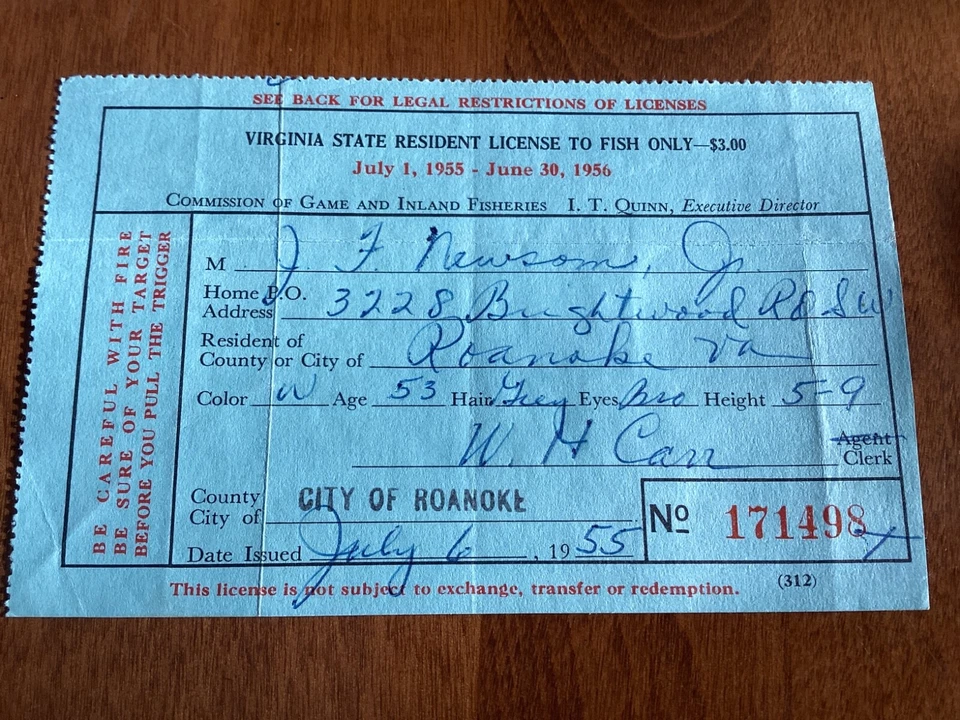 SEE BACK FOR LEGAL RESTRICTIONS OF LICENSES
VIRGINIA STATE RESIDENT LICENSE TO FISH ONLY—$3.00
July 1, 1955 - June 30, 1956
COMMISSION OF GAME AND INLAND FISHERIES I. T. QUINN, Executive Director
BE CAREFUL WITH FIRE
BE SURE OF YOUR TARGET
BEFORE YOU PULL THE TRIGGER
M J. F. Newsom, Jr
Home P.O.
Address 3228 Brightwood Rd SW
Resident of
County or City of Roanoke Va
Color W Age 53 Hair Grey Eyes Bro Height 5-9
W. H Carr Agent
Clerk
County
City of CITY OF ROANOKE
Date Issued July 6, 1955
No 171498
This license is not subject to exchange, transfer or redemption.
(312)